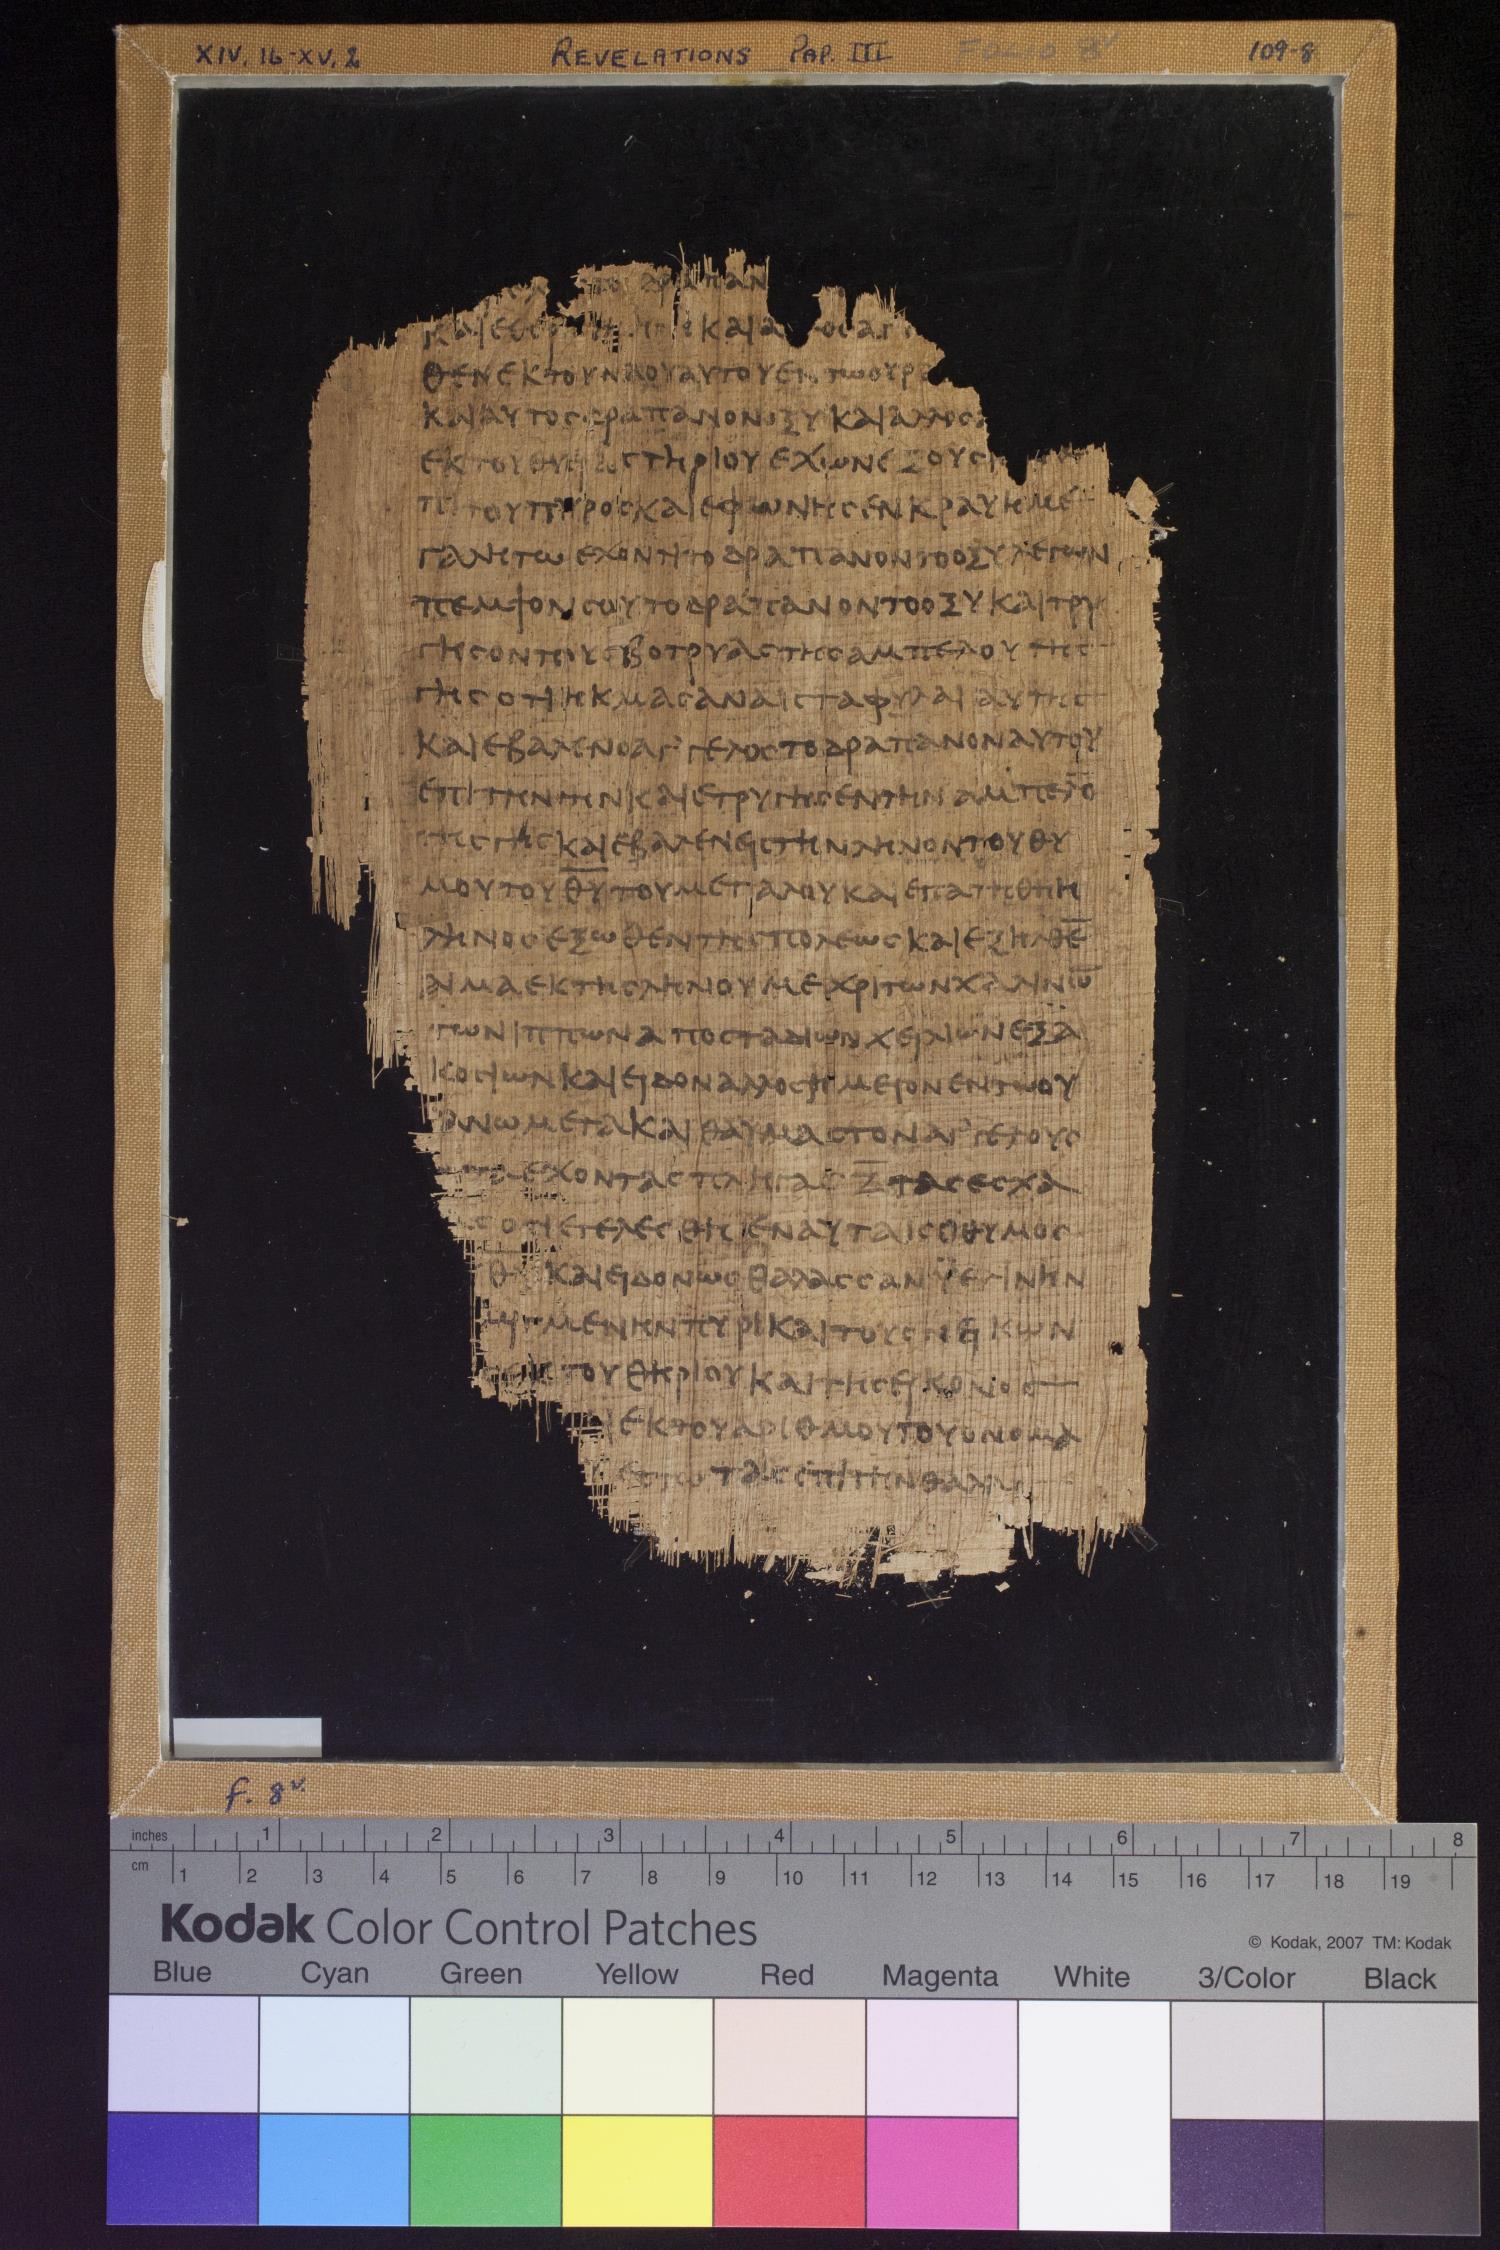 XIV. 16-XV. 2 REVELATIONS PAP. III FOLIO 8v 109-8
δραπαν
και
θεν εκ του ναου αυτου εν τω
και αυτος δραπανον οξυ και αλλος
εκ του εχων εξουσι
του πυρος και εφωνησεν κραυη με
γαλη τω εχοντι το δραπανον το οξυ λεγων
πεμψον σου το δραπανον το οξυ και τρυ
γησον τους βοτρυας της αμπελου της
γης οτι ηκμασαν αι σταφυλαι αυτης
και εβαλεν ο αγ᾽γελος το δραπανον αυτου
επι την γην και ετρυγησεν την αμπελο̅
της γης και εβαλεν εις την ληνον του θυ
μου του θ̅υ̅ του μεγαλου και επατηθη η
ληνος εξωθεν της πολεως και εξηλθε̅
αιμα εκ της ληνου μεχρι των χαλινω̅
των ιππων απο σταδιων χειλιων εξα
κοσιων και ειδον αλλο σημειον εν τω ου
ανω μεγα και θαυμαστον αγ᾽γελους
εχοντας πληγας ζ̅ τας εσχα
οτι ετελεσθη εν αυταις ο θυμος
θ̅υ̅ και ειδον ως θαλασσαν ϋελινην
μεμιγμενην πυρι και τους νεικων
εκ του θηριου και της εικονος
εκ του αριθμου του ονομα
επι την θαλασ
f. 8v.
inches 1 2 3 4 5 6 7 8
cm 1 2 3 4 5 6 7 8 9 10 11 12 13 14 15 16 17 18 19
Kodak Color Control Patches © Kodak, 2007 TM: Kodak
Blue Cyan Green Yellow Red Magenta White 3/Color Black